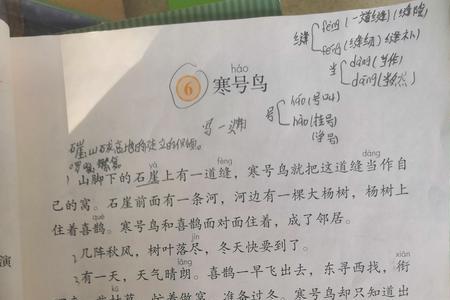 fèng(一道缝)(缝隙)
缝
féng(缝纫)缝补
dàng(当作)
当
dāng(当然)
hào
6 寒号鸟
háo(号叫)
号
hào(挂号)
yá fèng dàng
1山脚下的石崖上有一道缝，寒号鸟就把这道缝当作自
己的窝。石崖前面有一条河，河边有一棵大杨树，杨树上
què
住着喜鹊。寒号鸟和喜鹊面对面住着，成了邻居。
jìn
2几阵秋风，树叶落尽，冬天快要到了。
演
lǎng xián
3有一天，天气晴朗。喜鹊一早飞出去，东寻西找，衔
kū
忙着做窝，准备过冬。寒号鸟却只知道出